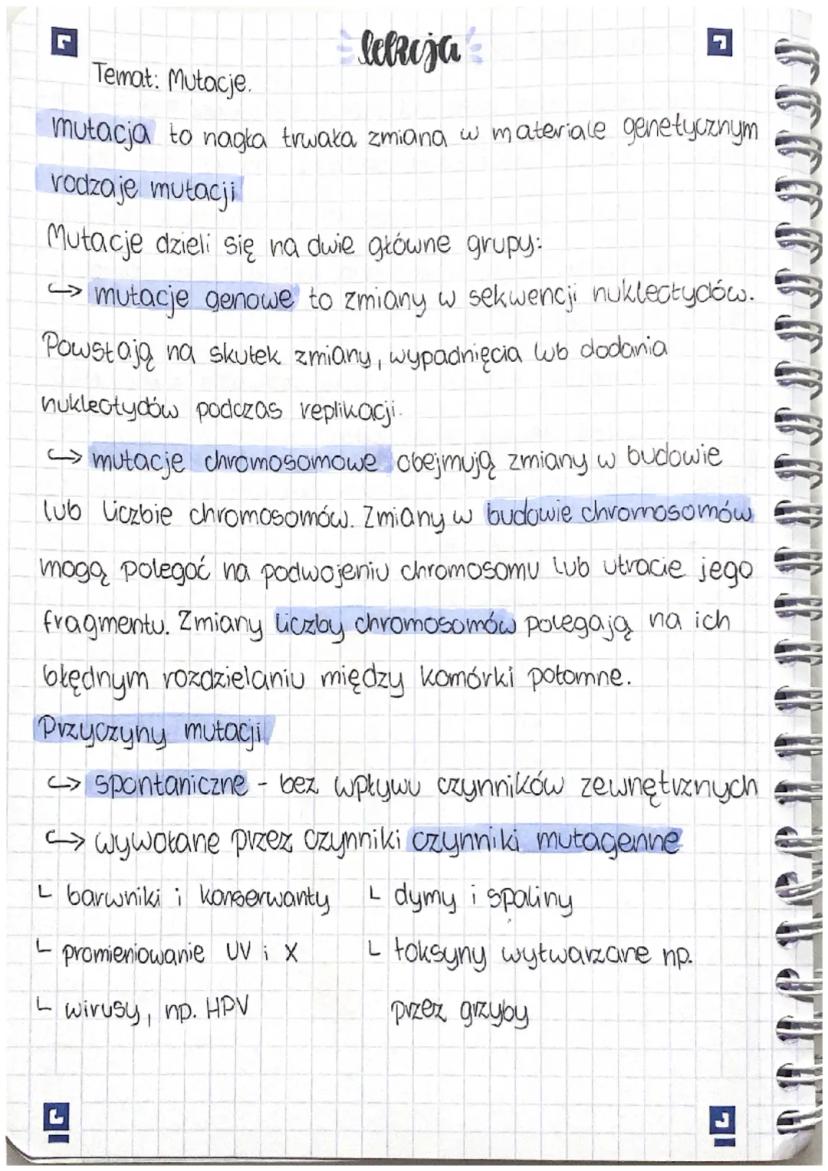 lekcja
Temat: Mutacje.
mutacja to nagła trwała zmiana w materiale genetycznym
rodzaje mutacji
Mutacje dzieli się na dwie główne grupy:
↪ mutacje genowe to zmiany w sekwencji nukleotydów.
Powstają na skutek zmiany, wypadnięcia lub dodania
nukleotydów podczas replikacji.
↪ mutacje chromosomowe obejmują zmiany w budowie
lub liczbie chromosomów. Zmiany w budowie chromosomów
mogą polegać na podwojeniu chromosomu lub utracie jego
fragmentu. Zmiany liczby chromosomów polegają na ich
błędnym rozdzielaniu między komórki potomne.
Przyczyny mutacji
↪ spontaniczne - bez wpływu czynników zewnętrznych
↪ wywołane przez czynniki czynniki mutagenne
└ barwniki i konserwanty └ dymy i spaliny
└ promieniowanie UV i X └ toksyny wytwarzane np.
└ wirusy, np. HPV przez grzyby